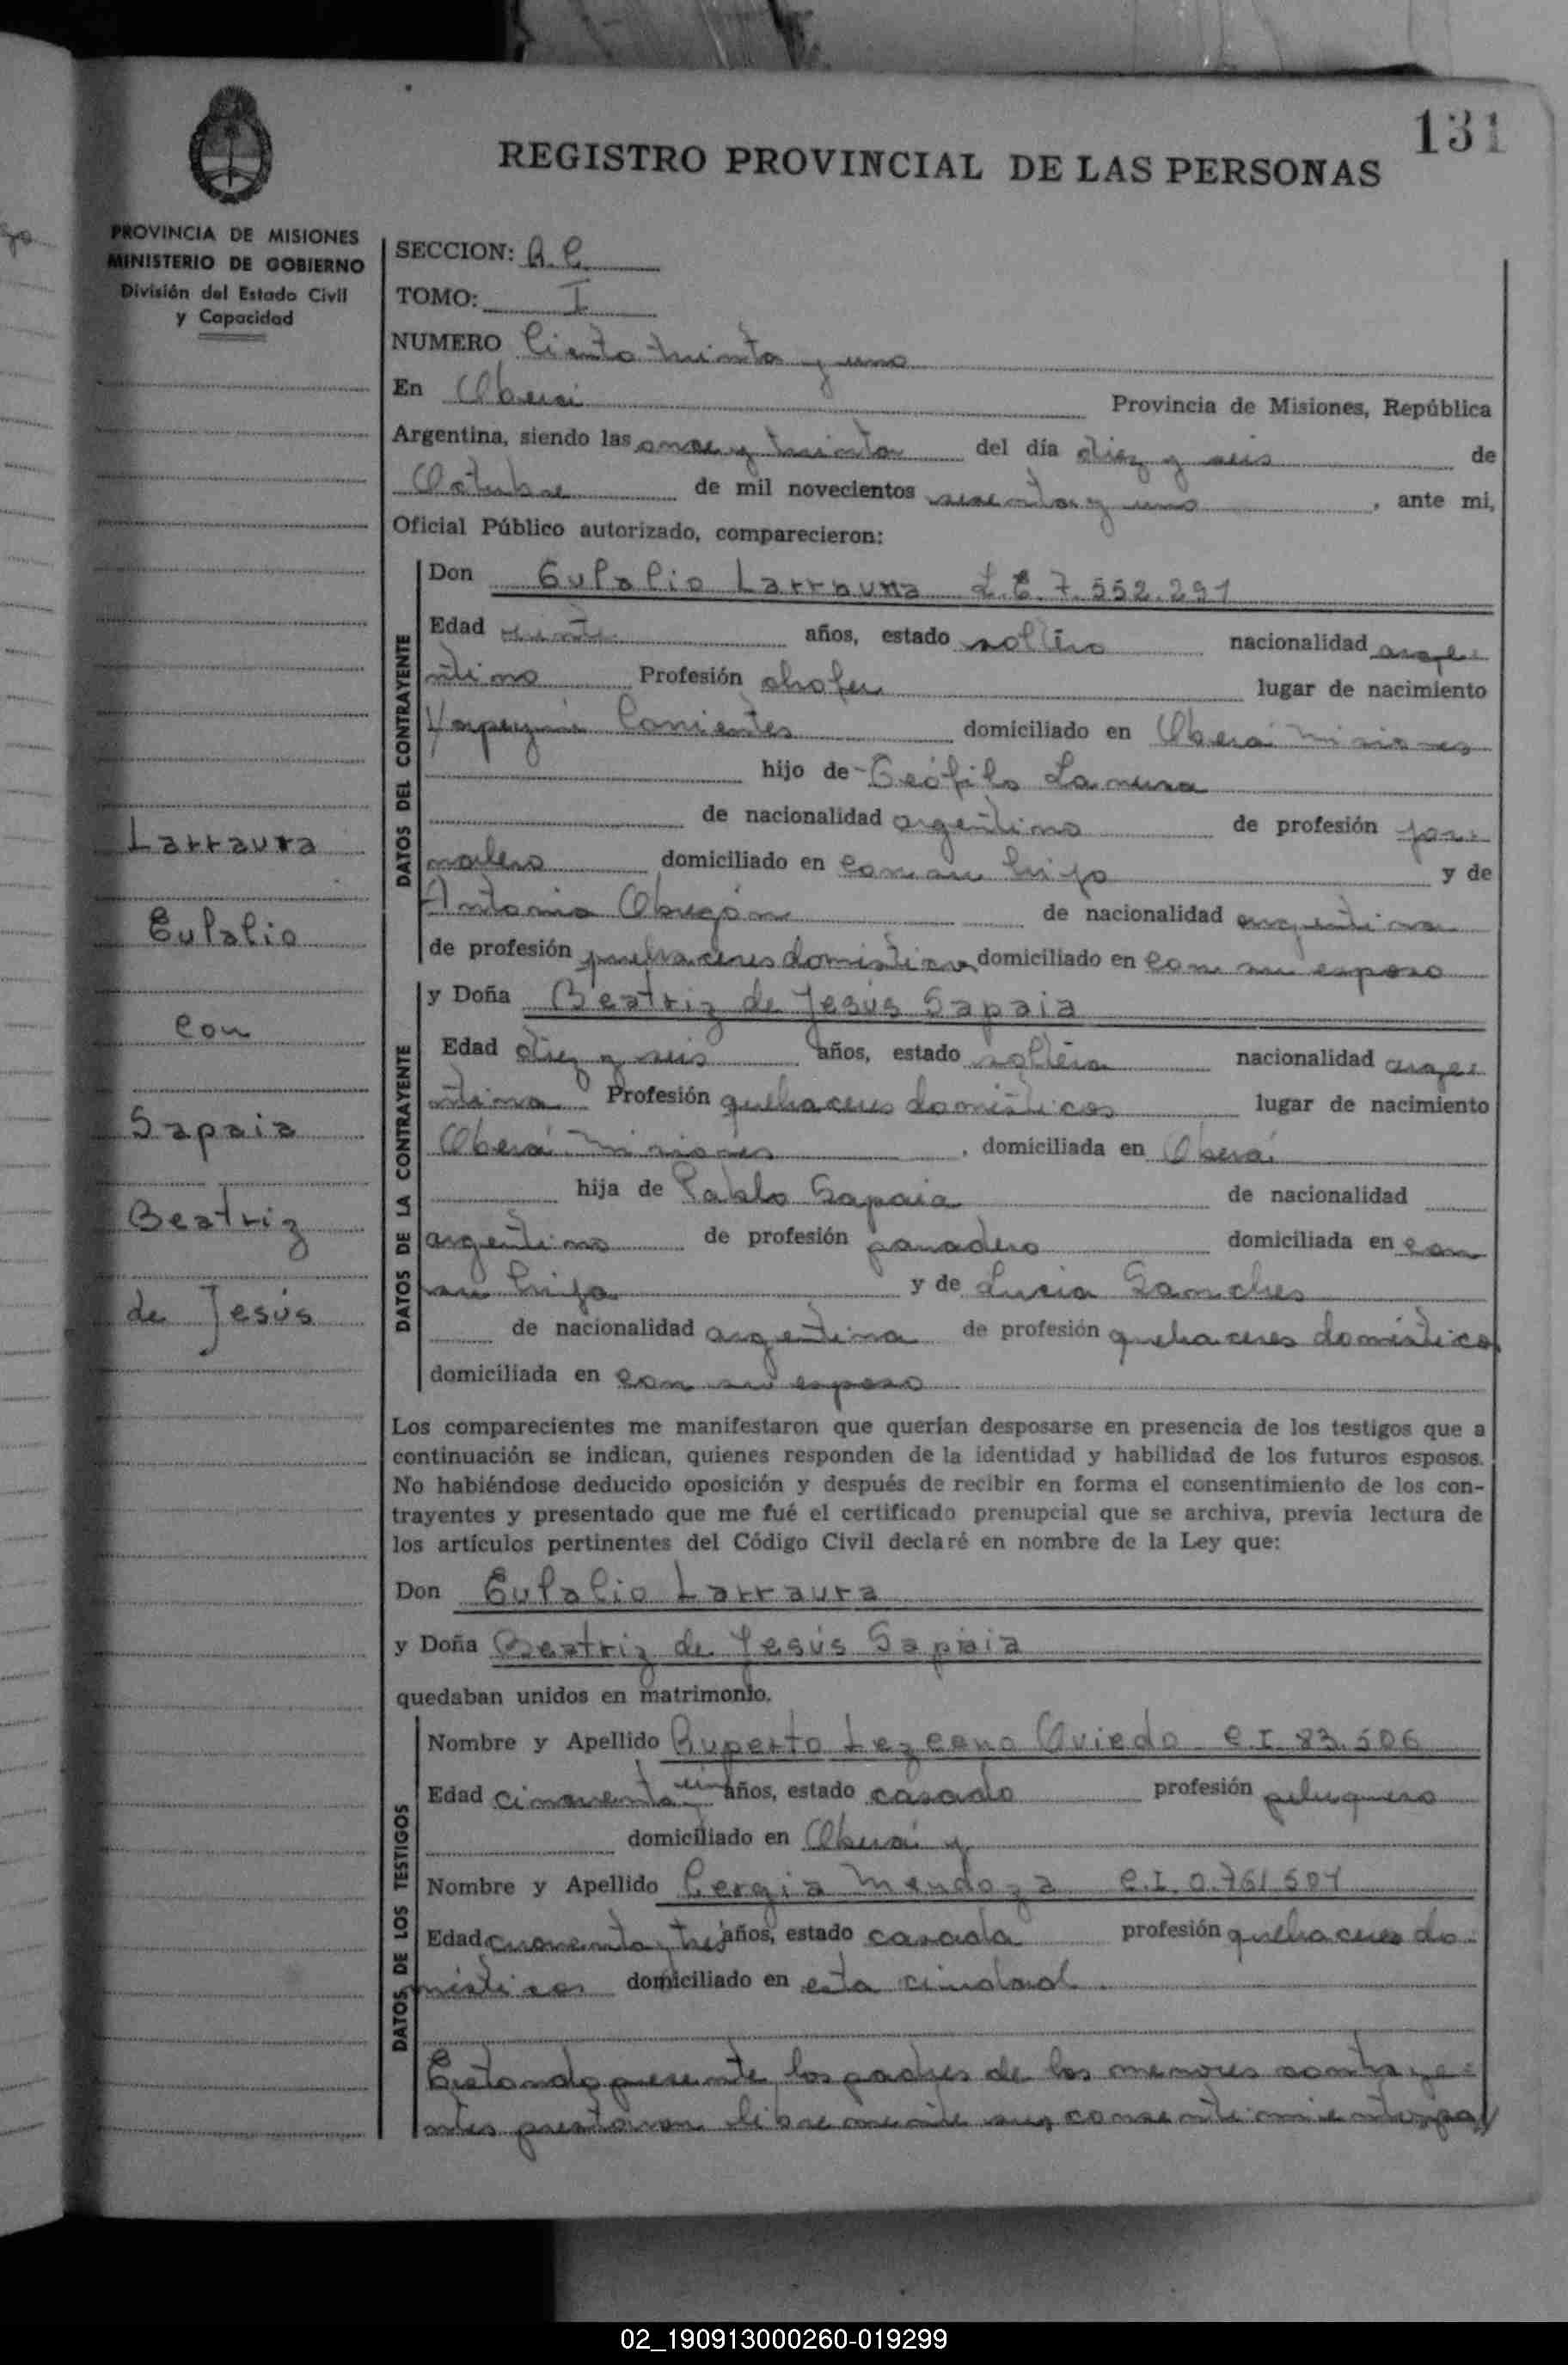 131
REGISTRO PROVINCIAL DE LAS PERSONAS
PROVINCIA DE MISIONES
MINISTERIO DE GOBIERNO
División del Estado Civil
y Capacidad
Larraura
Eulalio
con
Sapaia
Beatriz
de Jesús
SECCION: A. C.
TOMO: I
NUMERO Ciento treinta y uno
En Oberá Provincia de Misiones, República
Argentina, siendo las once y treinta del día diez y seis de
Octubre de mil novecientos sesenta y uno, ante mi,
Oficial Público autorizado, comparecieron:
DATOS DEL CONTRAYENTE
Don Eulalio Larraura L.E. 7.552.291
Edad veinte años, estado soltero nacionalidad arge-
ntino Profesión chofer lugar de nacimiento
Yapeyú Corrientes domiciliado en Oberá Misiones
hijo de Teófilo Larraura
de nacionalidad argentino de profesión jor-
nalero domiciliado en con su hijo y de
Antonia Obregón de nacionalidad argentina
de profesión quehaceres domésticos domiciliado en con su esposo
DATOS DE LA CONTRAYENTE
y Doña Beatriz de Jesús Sapaia
Edad diez y seis años, estado soltera nacionalidad arge-
ntina Profesión quehaceres domésticos lugar de nacimiento
Oberá Misiones, domiciliada en Oberá
hija de Pablo Sapaia de nacionalidad
argentino de profesión panadero domiciliada en con
su hija y de Lucia Sanches
de nacionalidad argentina de profesión quehaceres domésticos
domiciliada en con su esposo
Los comparecientes me manifestaron que querían desposarse en presencia de los testigos que a
continuación se indican, quienes responden de la identidad y habilidad de los futuros esposos.
No habiéndose deducido oposición y después de recibir en forma el consentimiento de los con-
trayentes y presentado que me fué el certificado prenupcial que se archiva, previa lectura de
los artículos pertinentes del Código Civil declaré en nombre de la Ley que:
Don Eulalio Larraura
y Doña Beatriz de Jesús Sapaia
quedaban unidos en matrimonio.
DATOS DE LOS TESTIGOS
Nombre y Apellido Ruperto Lezcano Oviedo C.I. 83.506
Edad cincuenta y un años, estado casado profesión peluquero
domiciliado en Oberá y
Nombre y Apellido Cergia Mendoza C.I. 0.761.507
Edad cuarenta y tres años, estado casada profesión quehaceres do-
mésticos domiciliado en esta ciudad.
Estando presente los padres de los menores contraye-
ntes prestaron libremente sus consentimientos pa/
02_190913000260-019299